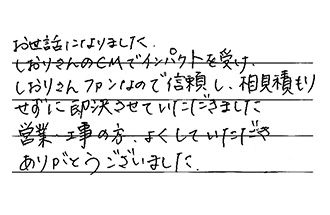 お世話になりました。
しおりさんのCMでインパクトを受け、
しおりさんファンなので信頼し、相見積もり
せずに即決させていただきました
営業・工事の方、よくしていただき
ありがとうございました。